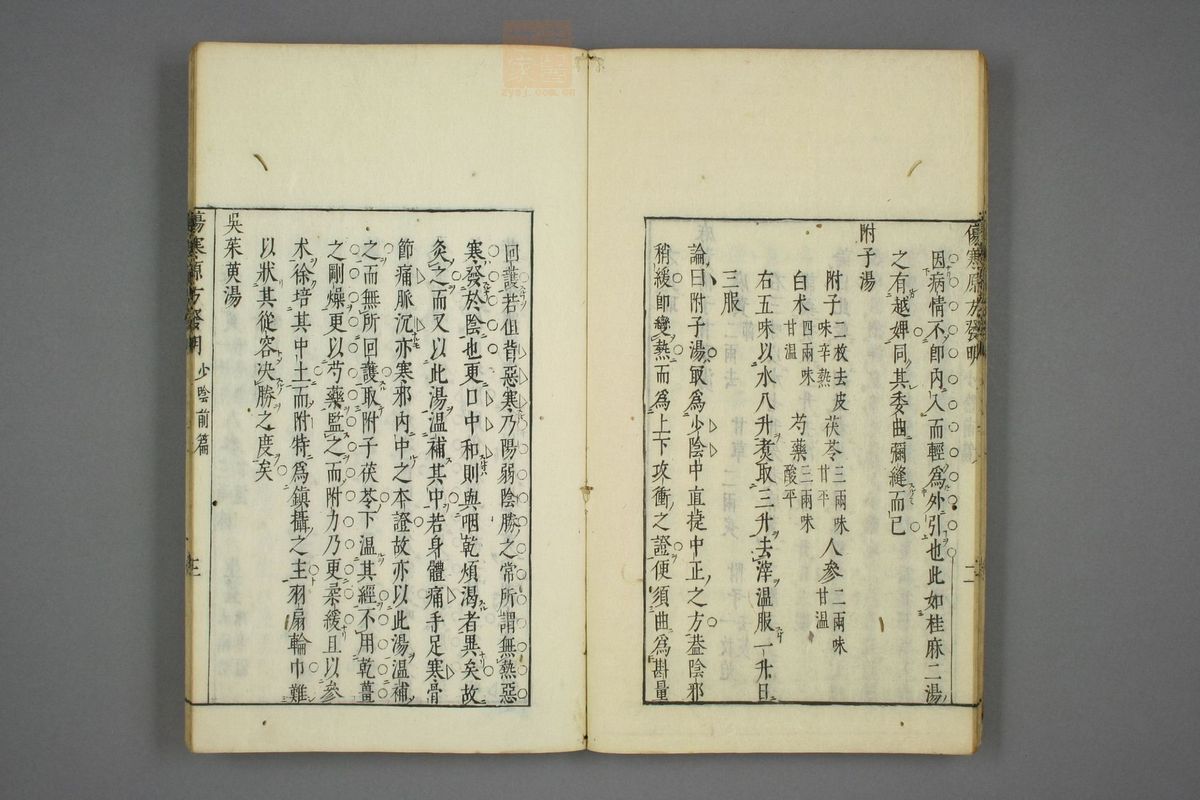 傷寒原方發明
因病情不卽內入而輕為外引也此如桂麻二湯
之有越婢同其委曲彌縫而已
附子湯
附子二枚去皮味辛熱 茯苓三兩味甘平 人參二兩味甘溫
白术四兩味甘溫 芍藥三兩味酸平
右五味以水八升煑取三升去滓溫服一升日
三服
論曰附子湯取為少陰中直捷中正之方葢陰邪
稍緩卽變熱而為上下攻衝之證便須曲為斟量
回護若但背惡寒乃陽弱陰勝之常所謂無熱惡
寒發於陰也更口中和則與咽乾煩渴者異矣故
灸之而又以此湯溫補其中若身體痛手足寒骨
節痛脈沉亦寒邪內中之本證故亦以此湯溫補
之而無所回護取附子茯苓下溫其經不用乾薑
之剛燥更以芍藥監之而附力乃更柔緩且以參
术徐培其中土而附特為鎮攝之主羽扇輪巾難
以狀其從容决勝之度矣
吳茱萸湯
傷寒原方發明 少陰前篇